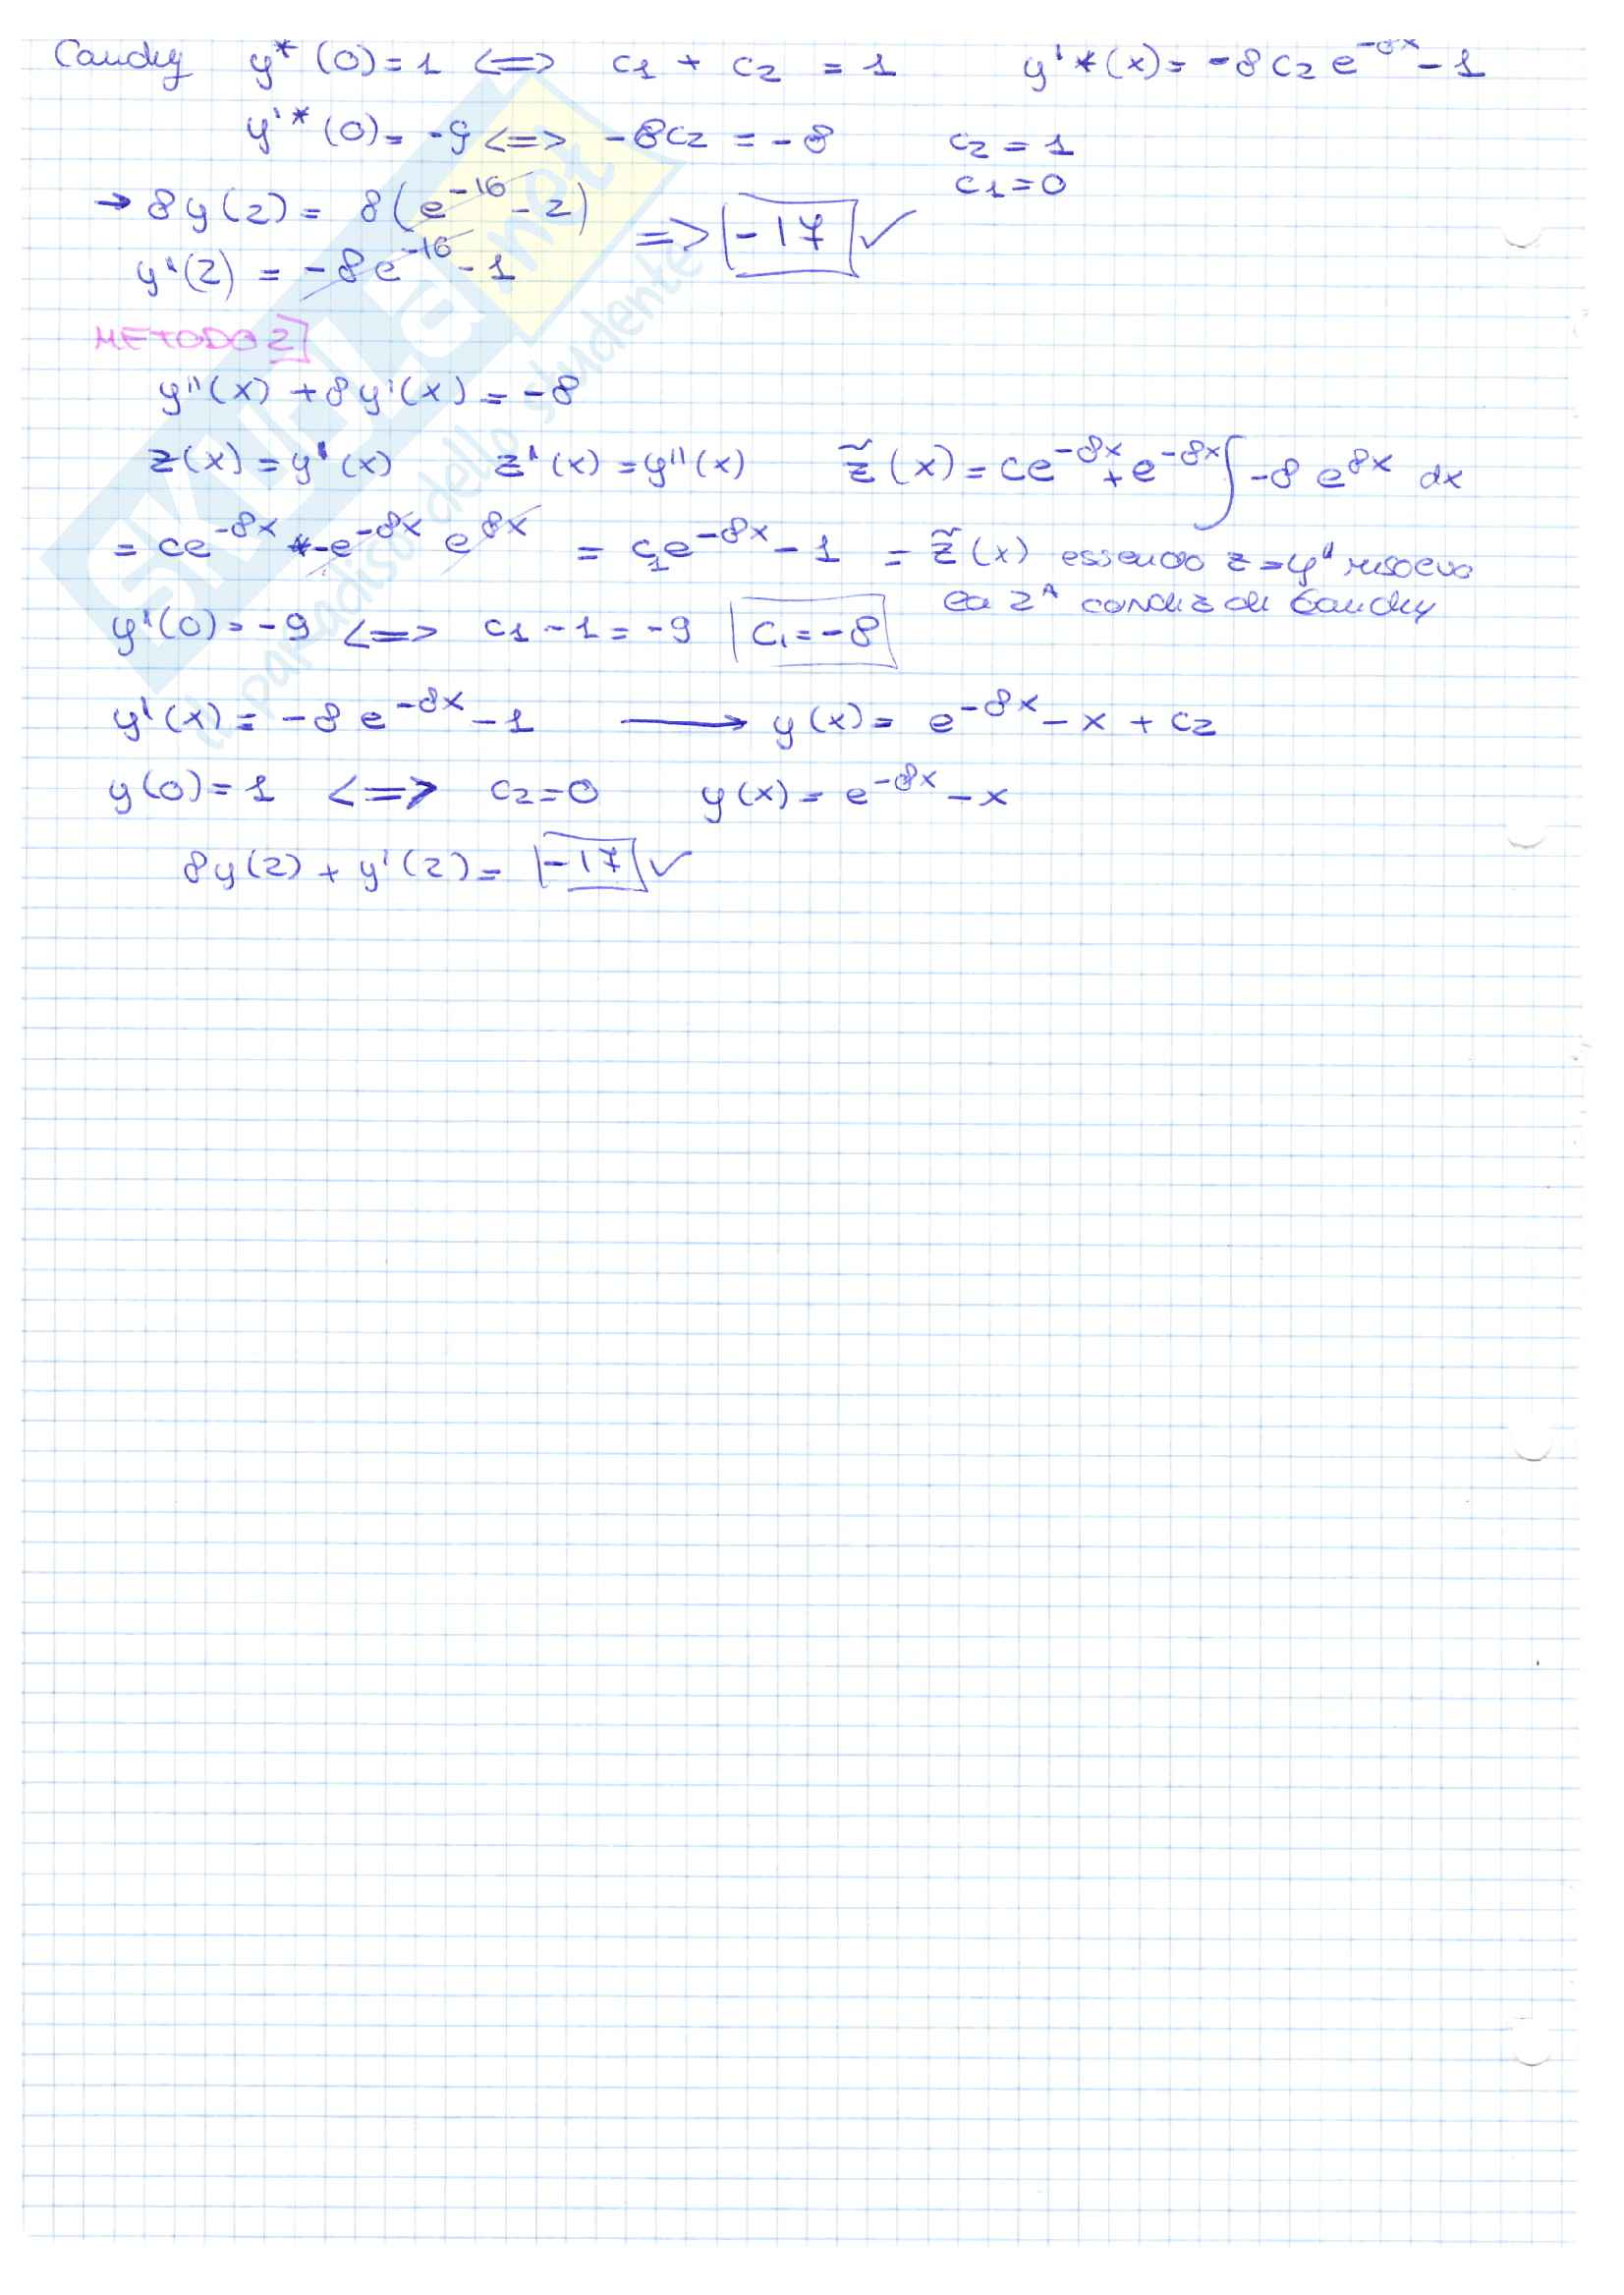 Cauchy y*(0)=1 <=> c1 + c2 = 1 y'*(x)= -8c2 e^-8x - 1
y'*(0)= -9 <=> -8c2 = -8 c2 = 1
c1=0
→ 8y(2) = 8(e^-16 - 2)
=> -17 ✓
y'(2) = -8e^-16 - 1
METODO 2
y''(x) + 8y'(x) = -8
z(x) = y'(x) z'(x) = y''(x) z̃(x) = ce^-8x + e^-8x ∫ -8 e^8x dx
= ce^-8x - e^-8x e^8x = c1e^-8x - 1 = z̃(x) essendo z=y' risolvo
la 2ª condiz di Cauchy
y'(0)=-9 <=> c1 - 1 = -9 c1=-8
y'(x) = -8 e^-8x - 1 → y(x) = e^-8x - x + c2
y(0)=1 <=> c2=0 y(x) = e^-8x - x
8y(2) + y'(2) = -17 ✓
SKUOLA.net
il paradiso dello studente